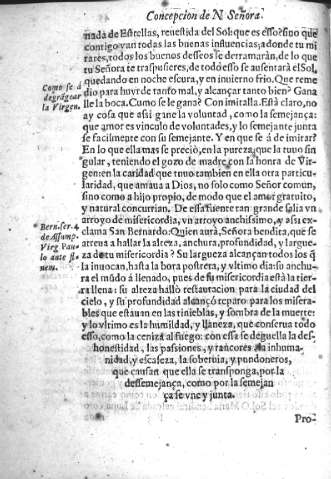 Concepcion de N. Señora.
nada de Estrellas, reuestida del Sol: que es esso? sino que
contigo van todas las buenas influencias; adonde tu mi
rares, todos los buenos desseos se derramarán, de lo que
tu Señora te traspusieres, de todo esso se ausentará el Sol,
quedando en noche escura, y en inuierno frio. Que reme
dio para huyr de tanto mal, y alcançar tanto bien? Gana
lle la boca. Cumo se le gana? Con imitalla. Està claro, no
ay cosa que assi gane la voluntad, como la semejança:
que amor es vinculo de voluntades, y lo semejante junta
se facilmente con su semejante. Y en que se à de imitar?
En lo que ella mas se preciò, en la pureza que la tuuo sin
gular, teniendo el gozo de madre, con la honra de Vir-
gen: en la caridad que tuuo tambien en ella otra particu-
laridad, que amaua a Dios, no solo como Señor comun,
sino como a hijo propio, de modo que el amor gratuito,
y natural concurrian. De essa fuente tan grande salia vn
arroyo de misericordia, vn arroyo anchissimo, y assi ex-
clama San Bernardo: Quien aurà, Señora bendita, que se
atreua a hallar la alteza, anchura, profundidad, y largue-
za de tu misericordia? Su largueza alcançan todos los q̃
la inuocan, hasta la hora postrera, y vltimo dia: su anchu-
ra el mũdo à llenado, pues de su misericordia està la tier-
ra llena: su alteza hallò restauracion para la ciudad del
cielo, y su profundidad alcançò reparo para los misera-
bles que estauan en las tinieblas, y sombra de la muerte:
y lo vltimo es la humildad, y llaneza, que conserua todo
esso, como la ceniza al fuego: con essa se deguella la des-
honestidad, las passiones, y rancores, la inhuma
nidad, y escaseza, la soberuia, y pundonores,
que causan que ella se transponga, por la
dessemejança, como por la semejan
ça se vne y junta.
Pro-
Como se à
de grãgear
la Virgen.
Bern. ser. 4.
de Assump.
Virg. Pau
lo ante fi-
nem.